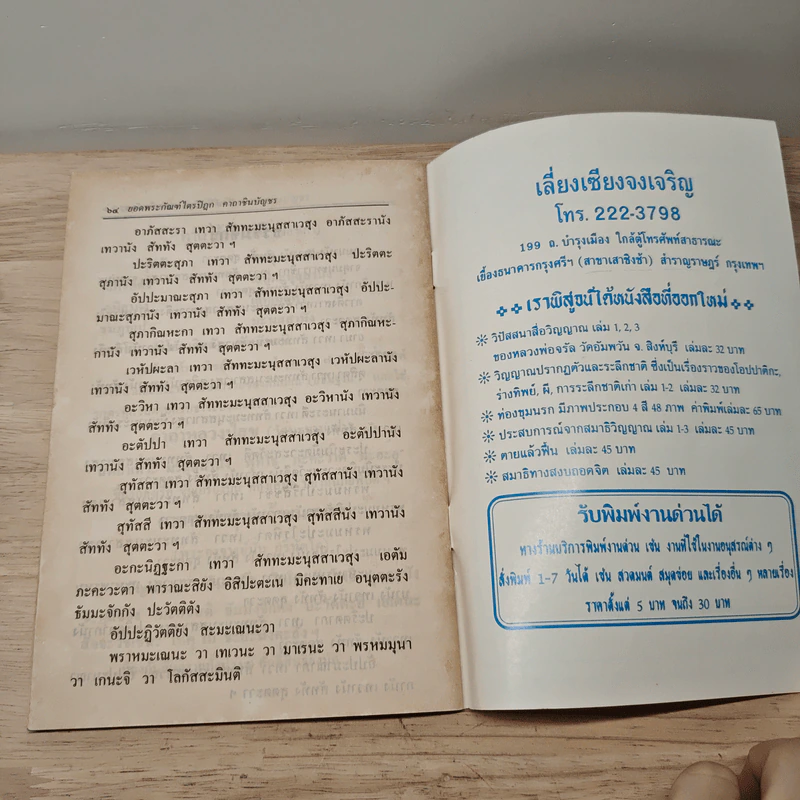 ๖๔ ยอดพระกัณฑ์ไตรปิฎก คาถาชินบัญชร
อาภัสสะรา เทวา สัททะมะนุสสาเวสุง อาภัสสะรานัง
เทวานัง สัททัง สุตตะวา ฯ
ปะริตตะสุภา เทวา สัททะมะนุสสาเวสุง ปะริตตะ
สุภานัง เทวานัง สัททัง สุตตะวา ฯ
อัปปะมาณะสุภา เทวา สัททะมะนุสสาเวสุง อัปปะ-
มาณะสุภานัง เทวานัง สัททัง สุตตะวา ฯ
สุภากิณหะกา เทวา สัททะมะนุสสาเวสุง สุภากิณหะ-
กานัง เทวานัง สัททัง สุตตะวา ฯ
เวหัปผะลา เทวา สัททะมะนุสสาเวสุง เวหัปผะลานัง
เทวานัง สัททัง สุตตะวา ฯ
อะวิหา เทวา สัททะมะนุสสาเวสุง อะวิหานัง เทวานัง
สัททัง สุตตะวา ฯ
อะตัปปา เทวา สัททะมะนุสสาเวสุง อะตัปปานัง
เทวานัง สัททัง สุตตะวา ฯ
สุทัสสา เทวา สัททะมะนุสสาเวสุง สุทัสสานัง เทวานัง
สัททัง สุตตะวา ฯ
สุทัสสี เทวา สัททะมะนุสสาเวสุง สุทัสสีนัง เทวานัง
สัททัง สุตตะวา ฯ
อะกะนิฏฐะกา เทวา สัททะมะนุสสาเวสุง เอตัม
ภะคะวะตา พาราณะสิยัง อิสิปะตะเน มิคะทาเย อนุตตะรัง
ธัมมะจักกัง ปะวัตติตัง
อัปปะฏิวัตติยัง สะมะเณนะวา
พราหมะเณนะ วา เทเวนะ วา มาเรนะ วา พรหมมุนา
วา เกนะจิ วา โลกัสสะมินติ
เลี่ยงเซียงจงเจริญ
โทร. 222-3798
199 ถ. บำรุงเมือง ใกล้ตู้โทรศัพท์สาธารณะ
เยื้องธนาคารกรุงศรีฯ (สาขาเสาชิงช้า) สำราญราษฎร์ กรุงเทพฯ
เราพิสูจน์ได้หนังสือที่ออกใหม่
วิปัสสนาสื่อวิญญาณ เล่ม 1, 2, 3
ของหลวงพ่อจรัล วัดอัมพวัน จ. สิงห์บุรี เล่มละ 32 บาท
วิญญาณปรากฏตัวและระลึกชาติ ซึ่งเป็นเรื่องราวของโอปปาติกะ,
ร่างทิพย์, ผี, การระลึกชาติเก่า เล่ม 1-2 เล่มละ 32 บาท
ท่องขุมนรก มีภาพประกอบ 4 สี 48 ภาพ ค่าพิมพ์เล่มละ 65 บาท
ประสบการณ์จากสมาธิวิญญาณ เล่ม 1-3 เล่มละ 45 บาท
ตายแล้วฟื้น เล่มละ 45 บาท
สมาธิทางสงบถอดจิต เล่มละ 45 บาท
รับพิมพ์งานด่วนได้
ทางร้านบริการพิมพ์งานด่วน เช่น งานที่ใช้ในงานอนุสรณ์ต่าง ๆ
สั่งพิมพ์ 1-7 วันได้ เช่น สวดมนต์ สมุดข่อย และเรื่องอื่น ๆ หลายเรื่อง
ราคาตั้งแต่ 5 บาท จนถึง 30 บาท